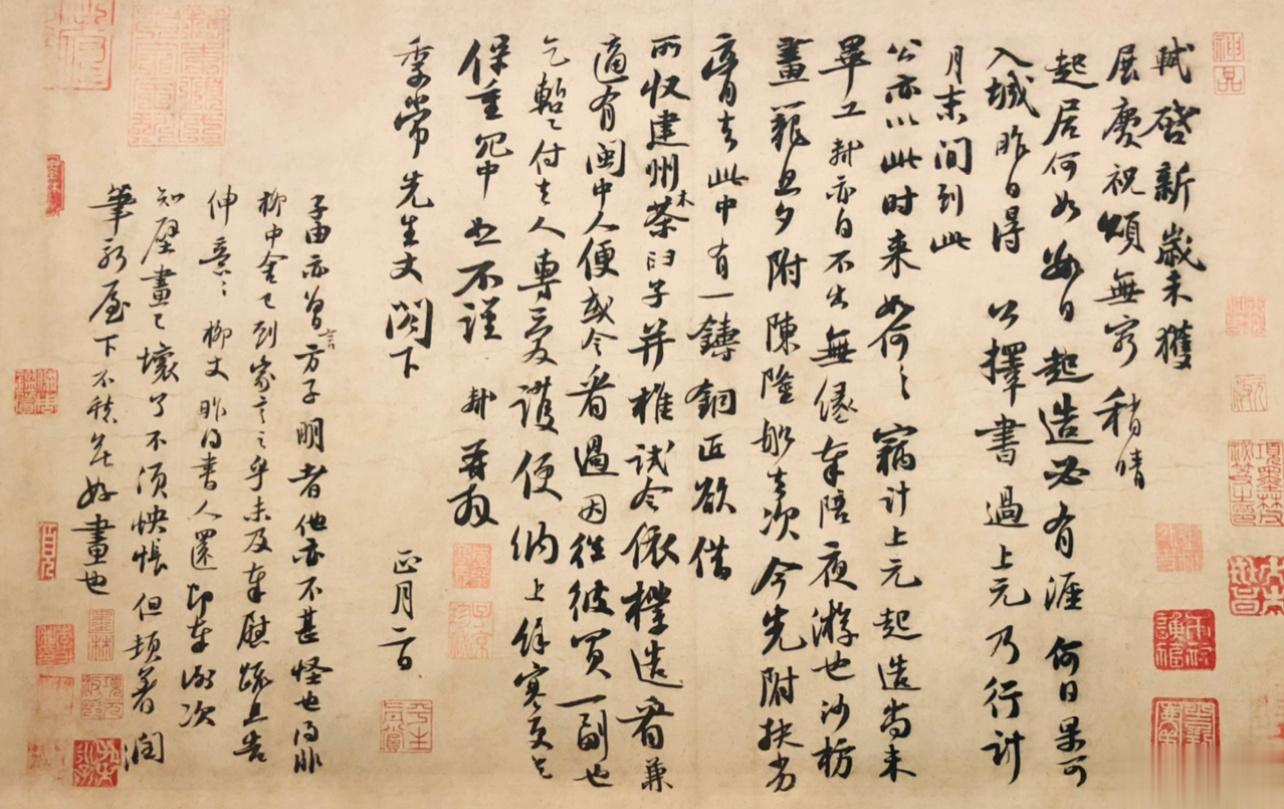 軾啓新歲未獲
展慶祝頌無窮稍晴
起居何如數日起造必有涯何日果可
入城昨日得公擇書過上元乃行計
月末間到此
公亦以此時來如何々竊計上元起造尚未
畢工軾亦自不出無緣奉陪夜游也沙枋
畫籠旦夕附陳隆船去次今先附扶劣
膏去此中有一鑄銅匠欲借
所收建州木茶臼子并椎試令依樣造看兼
適有閩中人便或令看過因往彼買一副也
乞暫付去人專愛護便納上餘寒更乞
保重冗中恕不謹軾再拜
季常先生丈閣下正月二日
子由亦曾言方子明者他亦不甚怪也得非
柳中舍已到家言之乎未及奉慰疏且告
伸意々柳丈昨得書人還即奉謝次
知壁畫已壞了不須怏悵但頓著潤
筆新屋下不愁無好畫也
神品
平生真賞